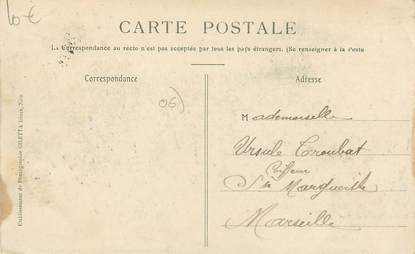 10€
CARTE POSTALE
La Correspondance au recto n'est pas acceptée par tous les pays étrangers. (Se renseigner à la Poste
Correspondance
Adresse
06)
Mademoiselle
Ursule Troubat
Ste Marguerite
Marseille
Etablissements de Photographie GILETTA frères, Nice